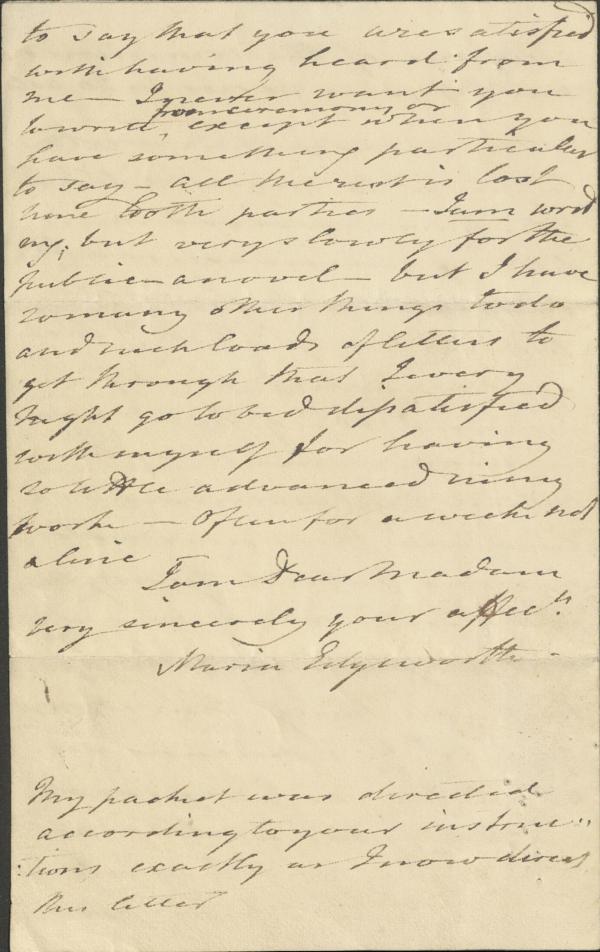 to say that you are satisfied
with having heard from
me — I never want you
from ceremony or
to write, except when you
have something particular
to say — all the rest is lost
time to both parties — I am writ
ing, but very slowly for the
public — a novel — but I have
so many other things to do
and such loads of letters to
get through that I every
night go to bed dissatisfied
with myself for having
so little advanced in my
work — Often for a week not
a line
I am Dear Madam
very sincerely your affec.n
Maria Edgeworth —
My packet was directed
according to your instruc"
:tions exactly as I now direct
this letter